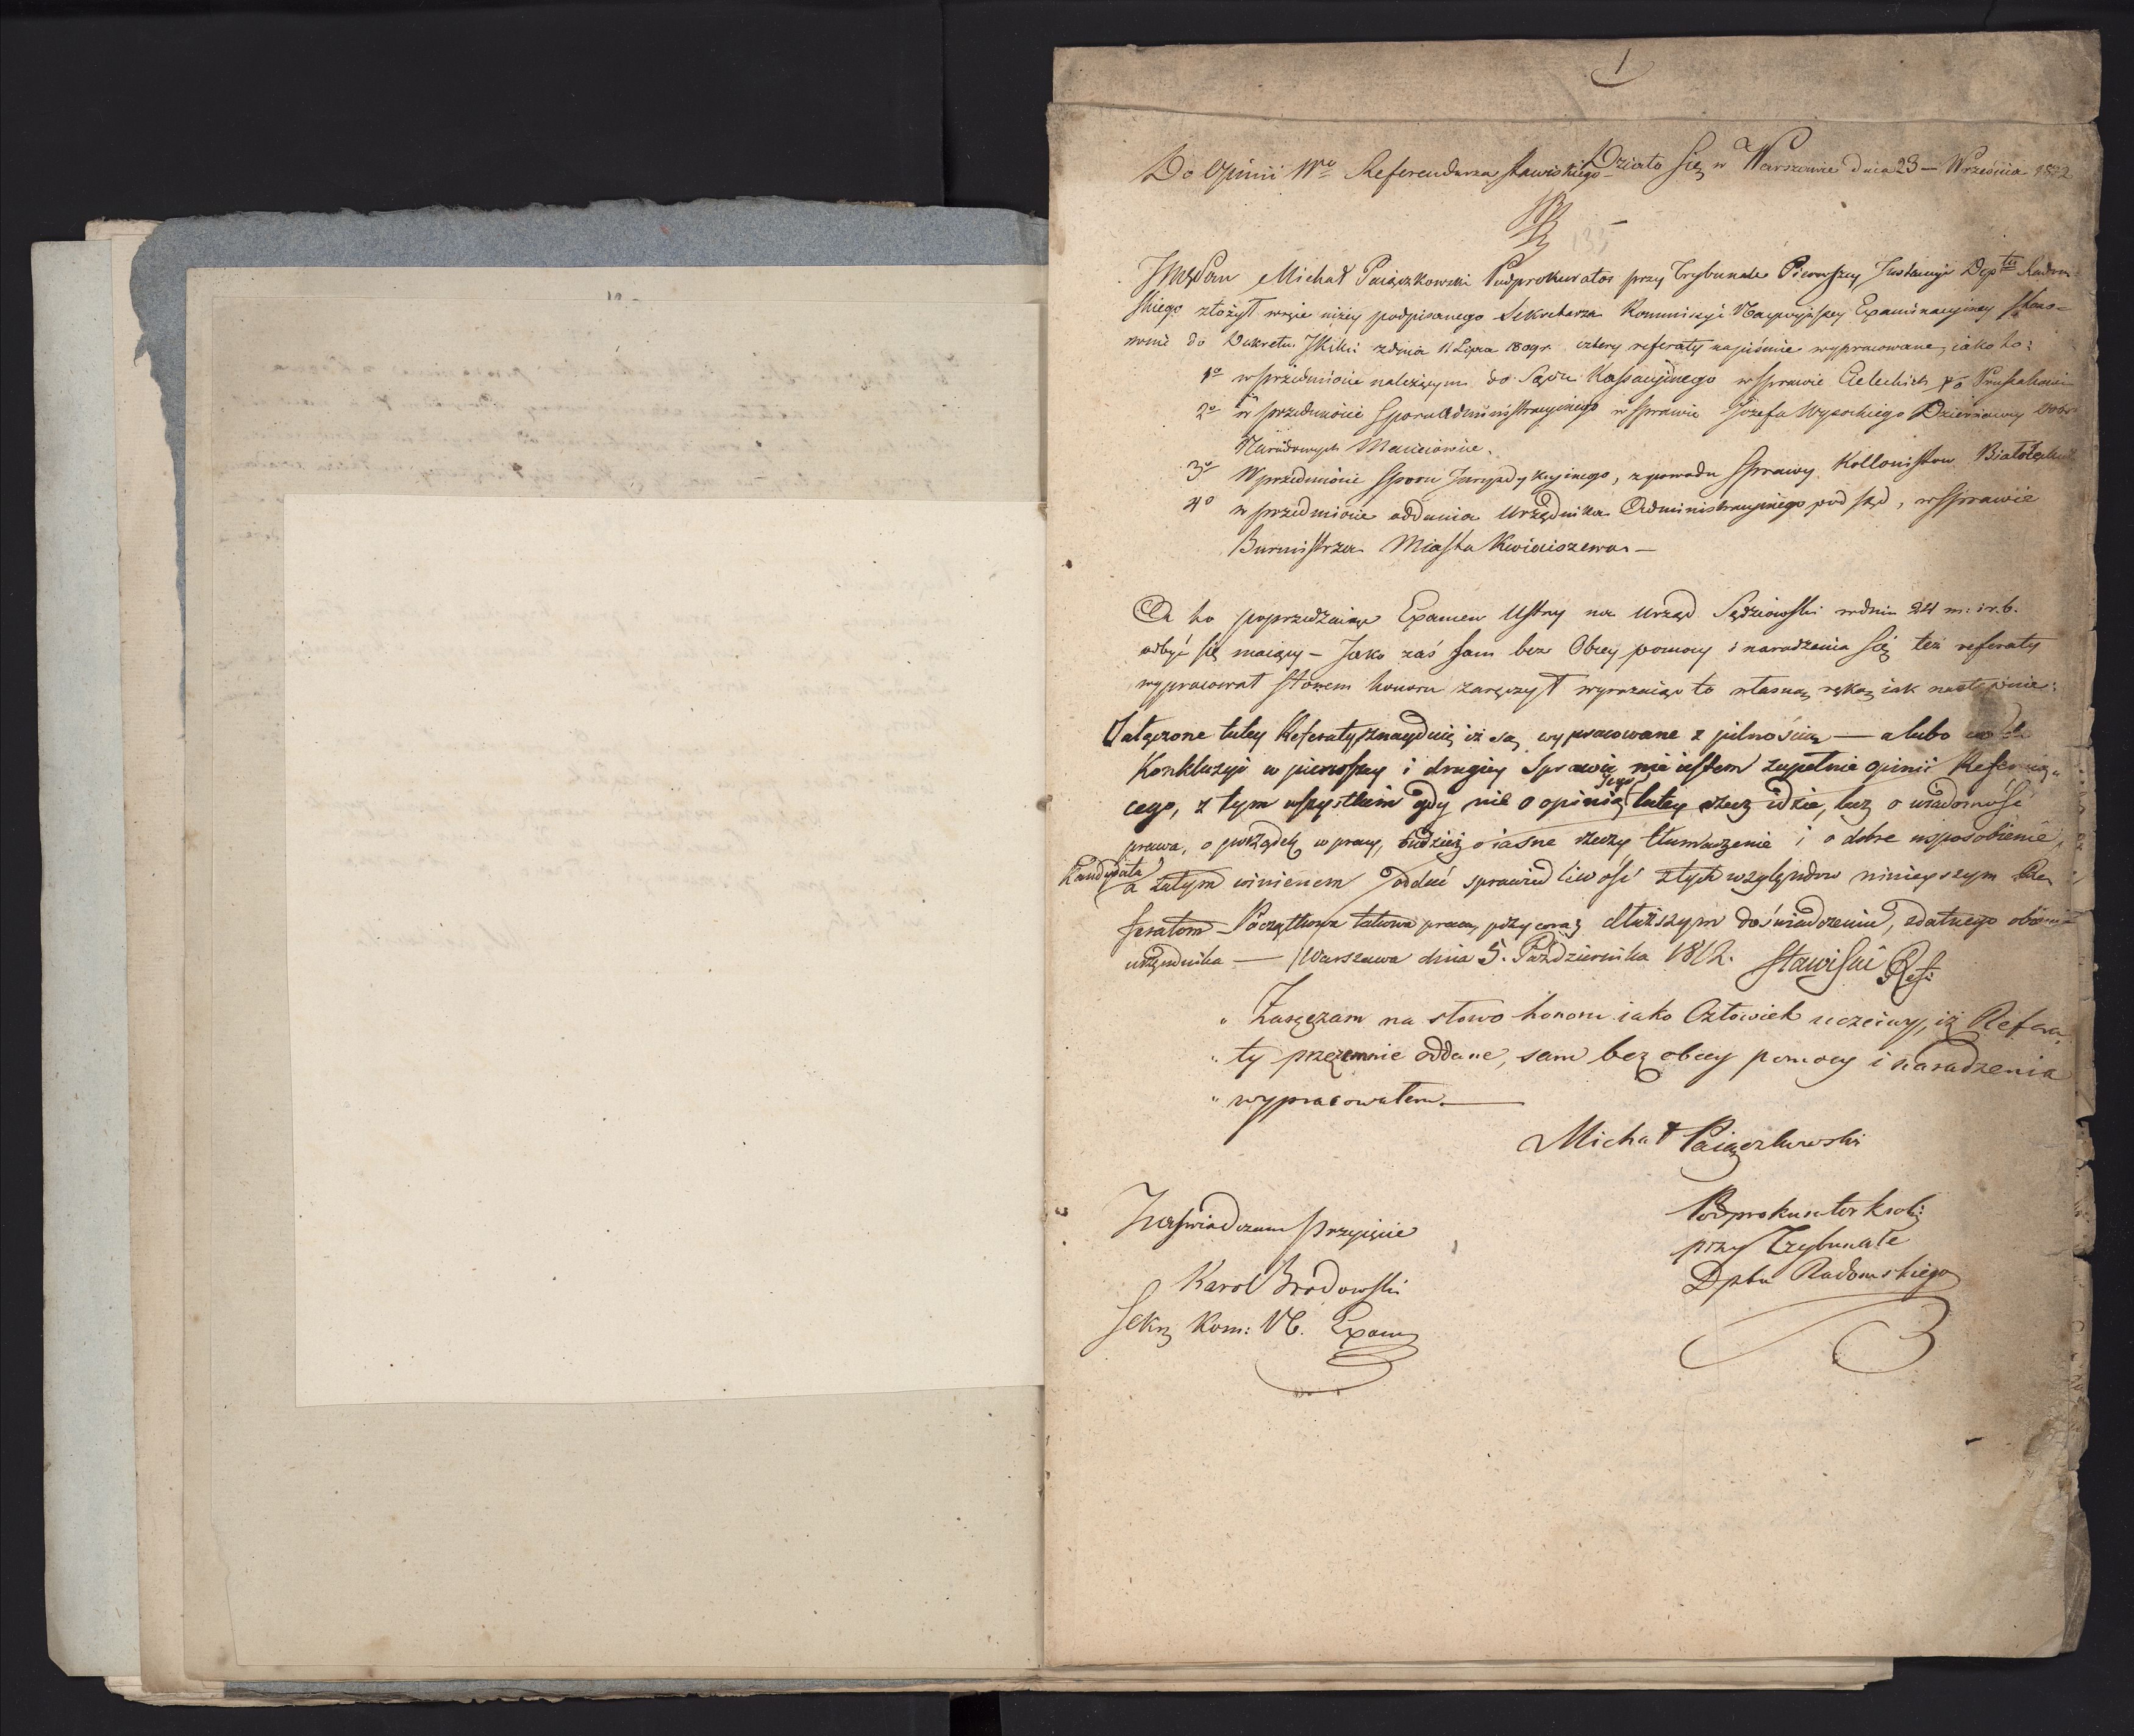 1
Do Opinii Wo Referendarza Stawiskiego Działo Się w Warszawie dnia 23 – Września 1812
133
JmćPan Michał Paiączkowski Podprokurator przy Trybunale Pierwszey Instancyi Dep^tu Radom
skiego złożył w ręce niżey podpisanego Sekretarza Kommissyi Naywyższey Examinacyiney stoso-
wnie do Dekretu JKMci z dnia 11 Lipca 1809 r. cztery referaty na piśmie wypracowane, iako to:
1o w przedmiocie należącym do Sądu Kassacyinego w sprawie
2o w przedmiocie Sporu Administracyinego w sprawie Józefa Wysockiego Dzierżawcy Dobr
Narodowych Maciciowice.
3o W przedmiocie Sporu Juryzdykcyinego, z powodu Sprawy Kollonistow
4o w przedmiocie oddania Urzędnika Administracyinego pod sąd, w Sprawie
Burmistrza Miasta Kwieciszewa. –
A to poprzedzaiąc Examen Ustny na Urząd Sędziowski w dniu 24 m: i r. b.
odbyć się maiący – Jako zaś sam bez Obcey pomocy i naradzenia Się też referaty
wypracował słowem honoru zaręczył wyrażaiąc to własną ręką iak następuie:
Załączone tutey Referaty znayduię iż są wypracowane z pilnością — a lubo co do
Konkluzyi w pierwszey i drugiey Sprawie nie iestem zupełnie opinii Referuią-
cego, z tym wszystkim gdy nie o opinią Jego tutey rzecz idzie, lecz o wiadomość
prawa, o porządek w pracy, tudzież o iasne rzeczy tłumaczenie i o dobre usposobienie
Kandydata
a zatym winienem oddać sprawiedliwość z tych względow ninieyszym Re-
feratom – Początkowa takowa praca, przy coraz dłuższym doświadczeniu, zdatnego
urzędnika — Warszawa dnia 5. Października 1812. Stawiski Ref:
" Zaręczam na słowo honoru iako Człowiek uczciwy, iż Refera-
" ty przezemnie oddane, sam bez obcey pomocy i naradzenia
" wypracowałem. —
Michał Paiączkowski
Podprokurator Krol:
przy Trybunale
Dptu Radomskiego
Zaświadczam Przyięcie
Karol Brodowski
Sekr Kom: N. Exam